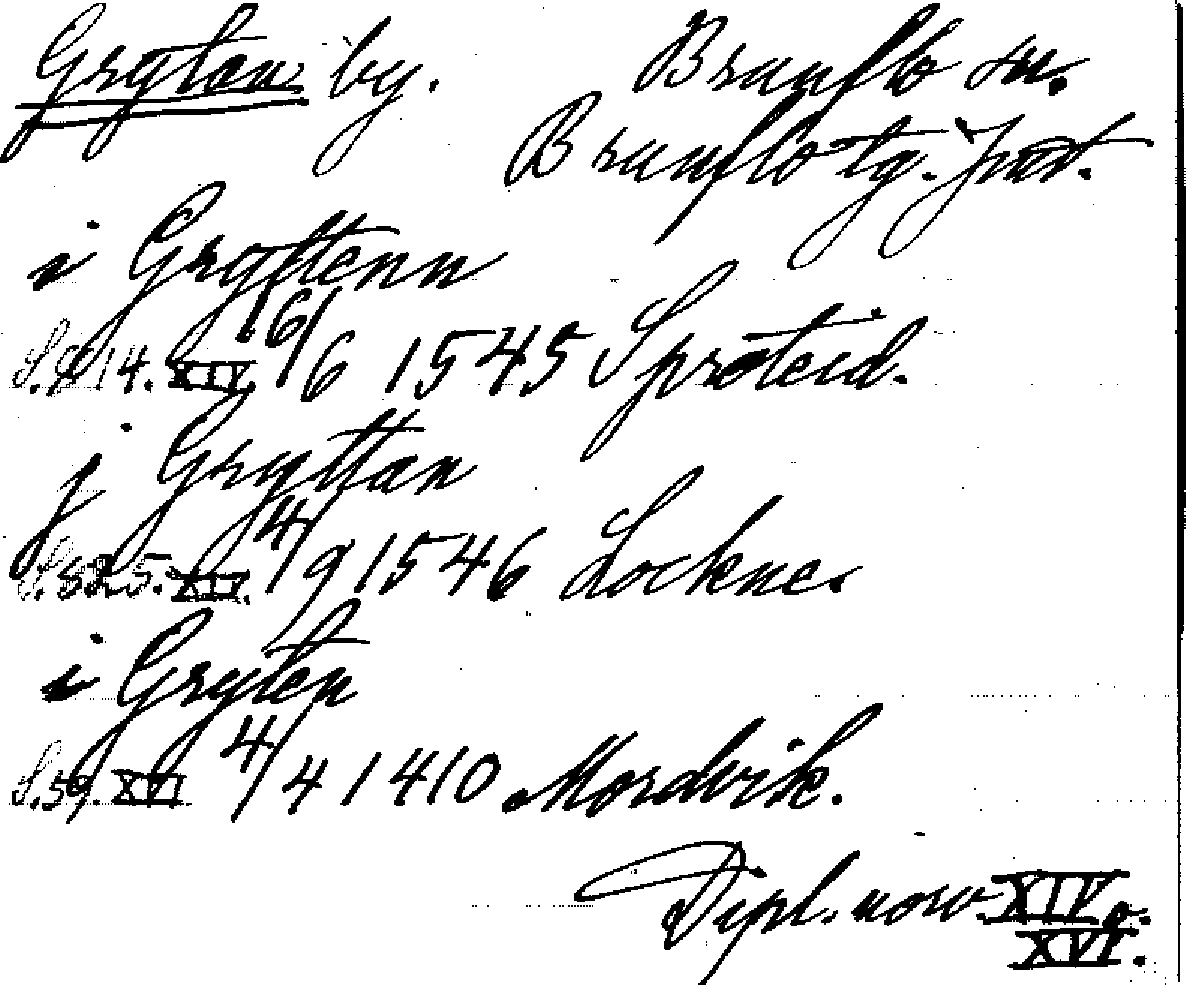 Gryten by. Brunflo sn.
Brunflo tg. Jmt.
i Gryttenn
S. 814. XIV 16/6 1545 Spröteid.
j Gryttan
S. 825. XIV. 4/9 1546 Lockne.
i Gryten
S. 59. XVI 4/4 1410 Mordvik.
Dipl. norv. XIV o.
XVI.